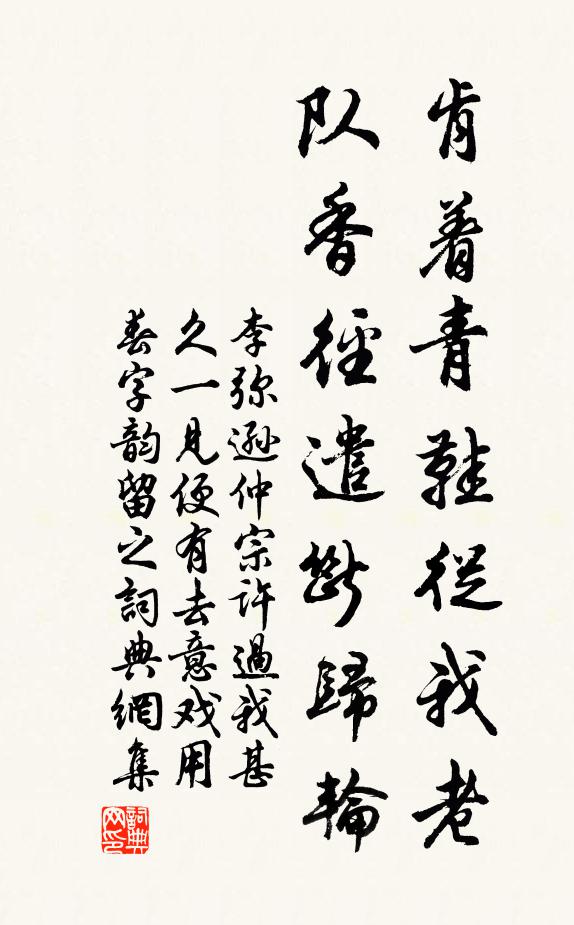 肯着青鞋從我老
队香徑遣斷歸輪
李弥遜仲宗許過我甚
久一見便有去意戏用
春字韵留之詞典網集
詞典
网印